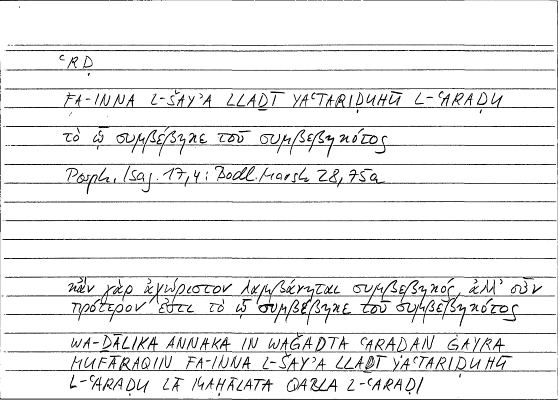 ʿRḌ
FA-INNA L-ŠAYʾA LLAḎĪ YAʿTARIḌUHŪ L-ʿARAḌU
τὸ ᾧ συμβέβηκε τοῦ συμβεβηκότος
Porph. Isag. 17,4: Bodl. Marsh 28, 75a
κἂν γὰρ ἀχώριστον λαμβάνηται συμβεβηκός, ἀλλ' οὖν
πρότερόν ἐστι τὸ ᾧ συμβέβηκε τοῦ συμβεβηκότος
WA-ḎĀLIKA ANNAKA IN WAǦADTA ʿARAḌAN ĠAYRA
MUFĀRAQIN FA-INNA L-ŠAYʾA LLAḎĪ YAʿTARIḌUHŪ
L-ʿARAḌU LĀ MAḤĀLATA QABLA L-ʿARAḌI